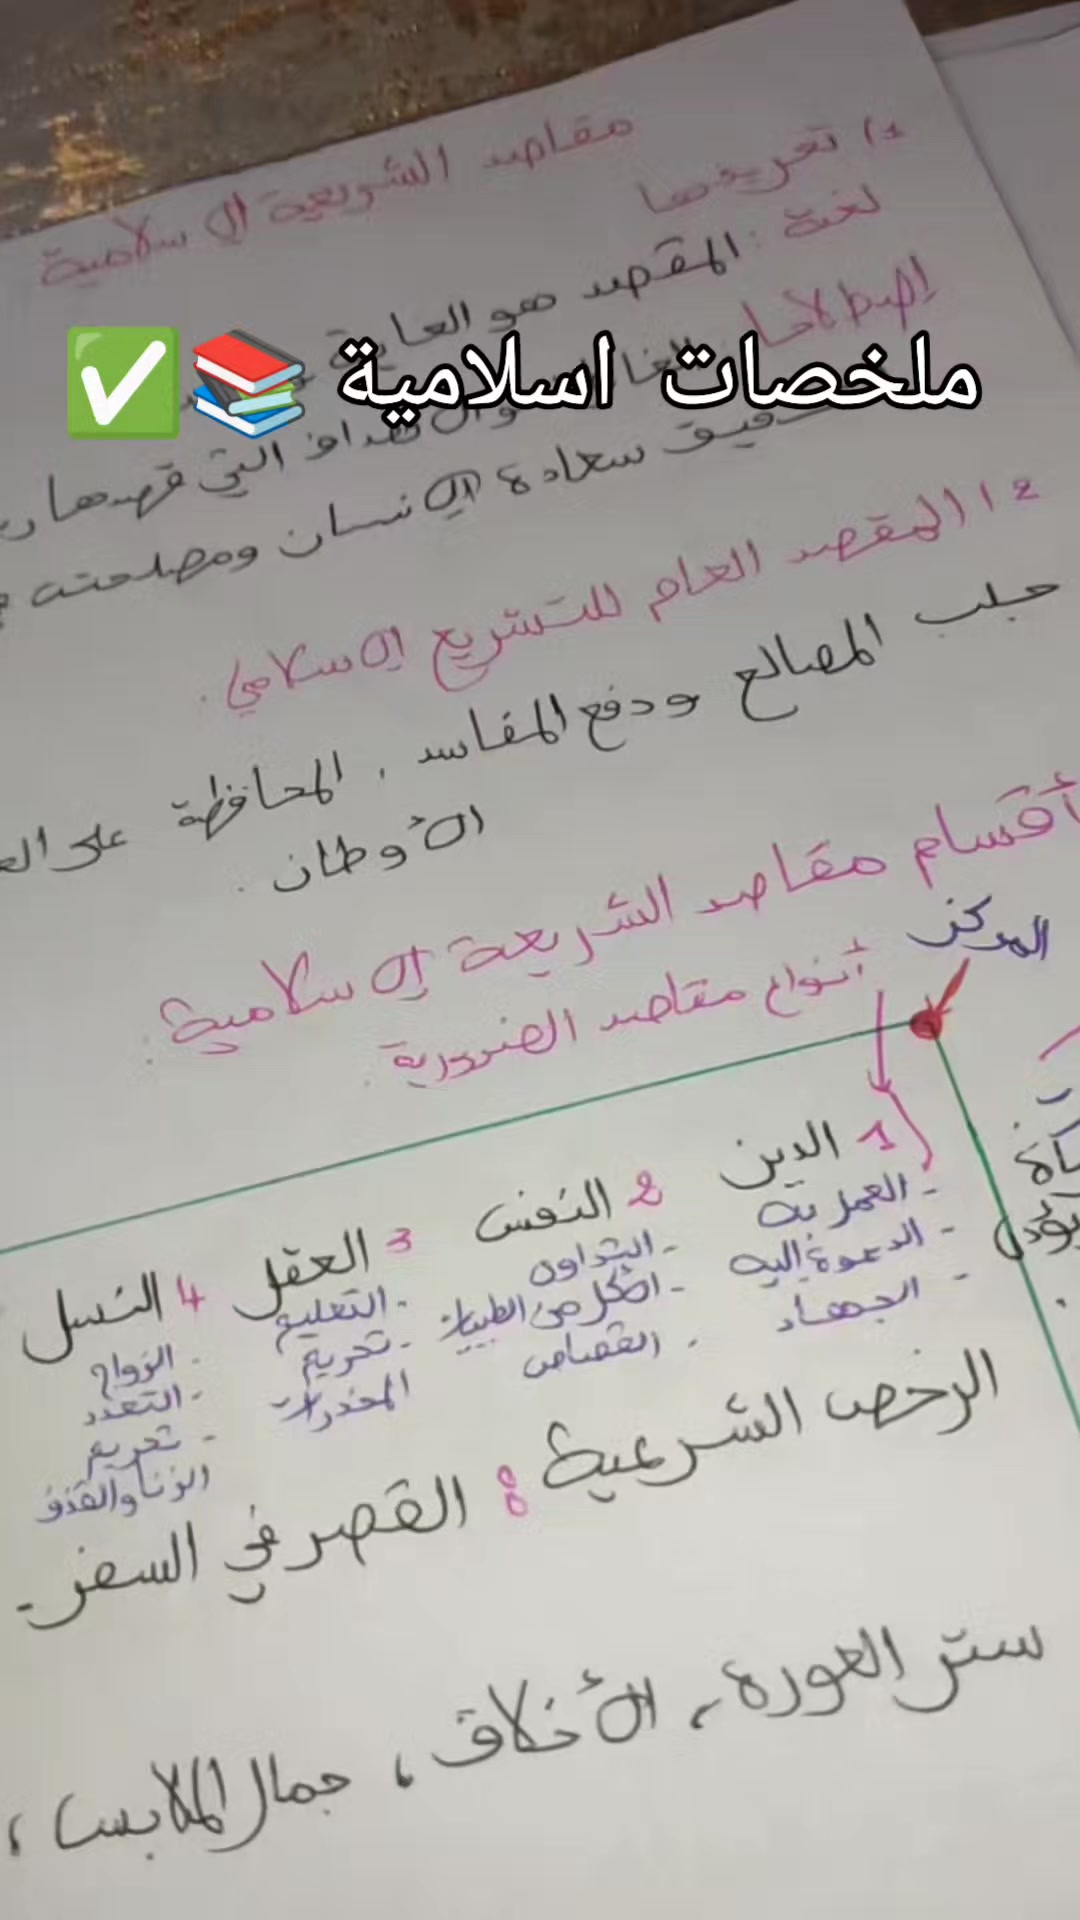 مقاصد الشريعية الاسلامية
1) تعريفها
لغة: المقصد هو الغاية
إصطلاحا
ملخصات اسلامية ✅📚
التي قصدها
سعادة الإنسان ومصلحته
2) المقصد العام للتشريع الإسلامي.
جلب المصالح ودفع المفاسد، المحافظة على
الأوطان.
أقسام مقاصد الشريعة الإسلامية.
المركز
أنواع مقاصد الضرورية.
1 الدين
- الدعوة إليه
- الجهاد
2 النفس
- التداوي
- الأكل من الطيبات
- القصاص
3 العقل
- التعليم
- تحريم
المخدرات
4 النسل
- الزواج
- التعدد
- تحريم
الزنا والقذف
الرخص الشرعية: القصر في السفر.
ستر العورة، الأخلاق، جمال الملابس،